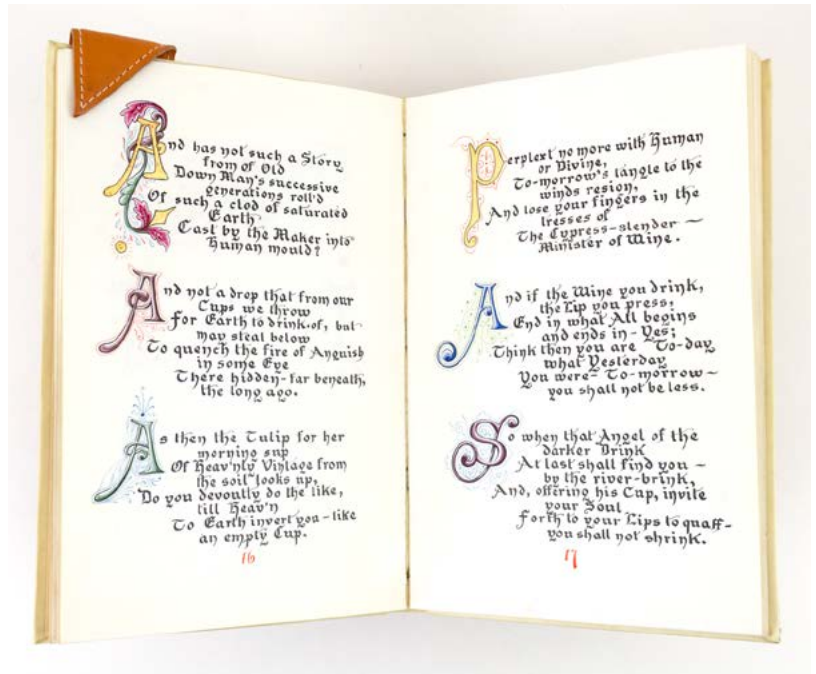 And has not such a Story
from of Old
Down Man's successive
generations roll'd
Of such a clod of saturated
Earth
Cast by the Maker into
Human mould?
And not a drop that from our
Cups we throw
For Earth to drink of, but
may steal below
To quench the fire of Anguish
in some Eye
There hidden-far beneath,
the long ago.
As then the Tulip for her
morning sup
Of Heav'nly Vintage from
the soil looks up,
Do you devoutly do the like,
till Heav'n
To Earth invert you-like
an empty Cup.
16
Perplext no more with Human
or Divine,
To-morrow's tangle to the
winds resign,
And lose your fingers in the
tresses of
The Cypress-slender-
Minister of Wine.
And if the Wine you drink,
the Lip you press,
End in what All begins
and ends in-Yes;
Think then you are To-day
what Yesterday
You were-To-morrow-
you shall not be less.
So when that Angel of the
darker Drink
At last shall find you-
by the river-brink,
And, offering his Cup, invite
your Soul
Forth to your Lips to quaff-
you shall not shrink.
17